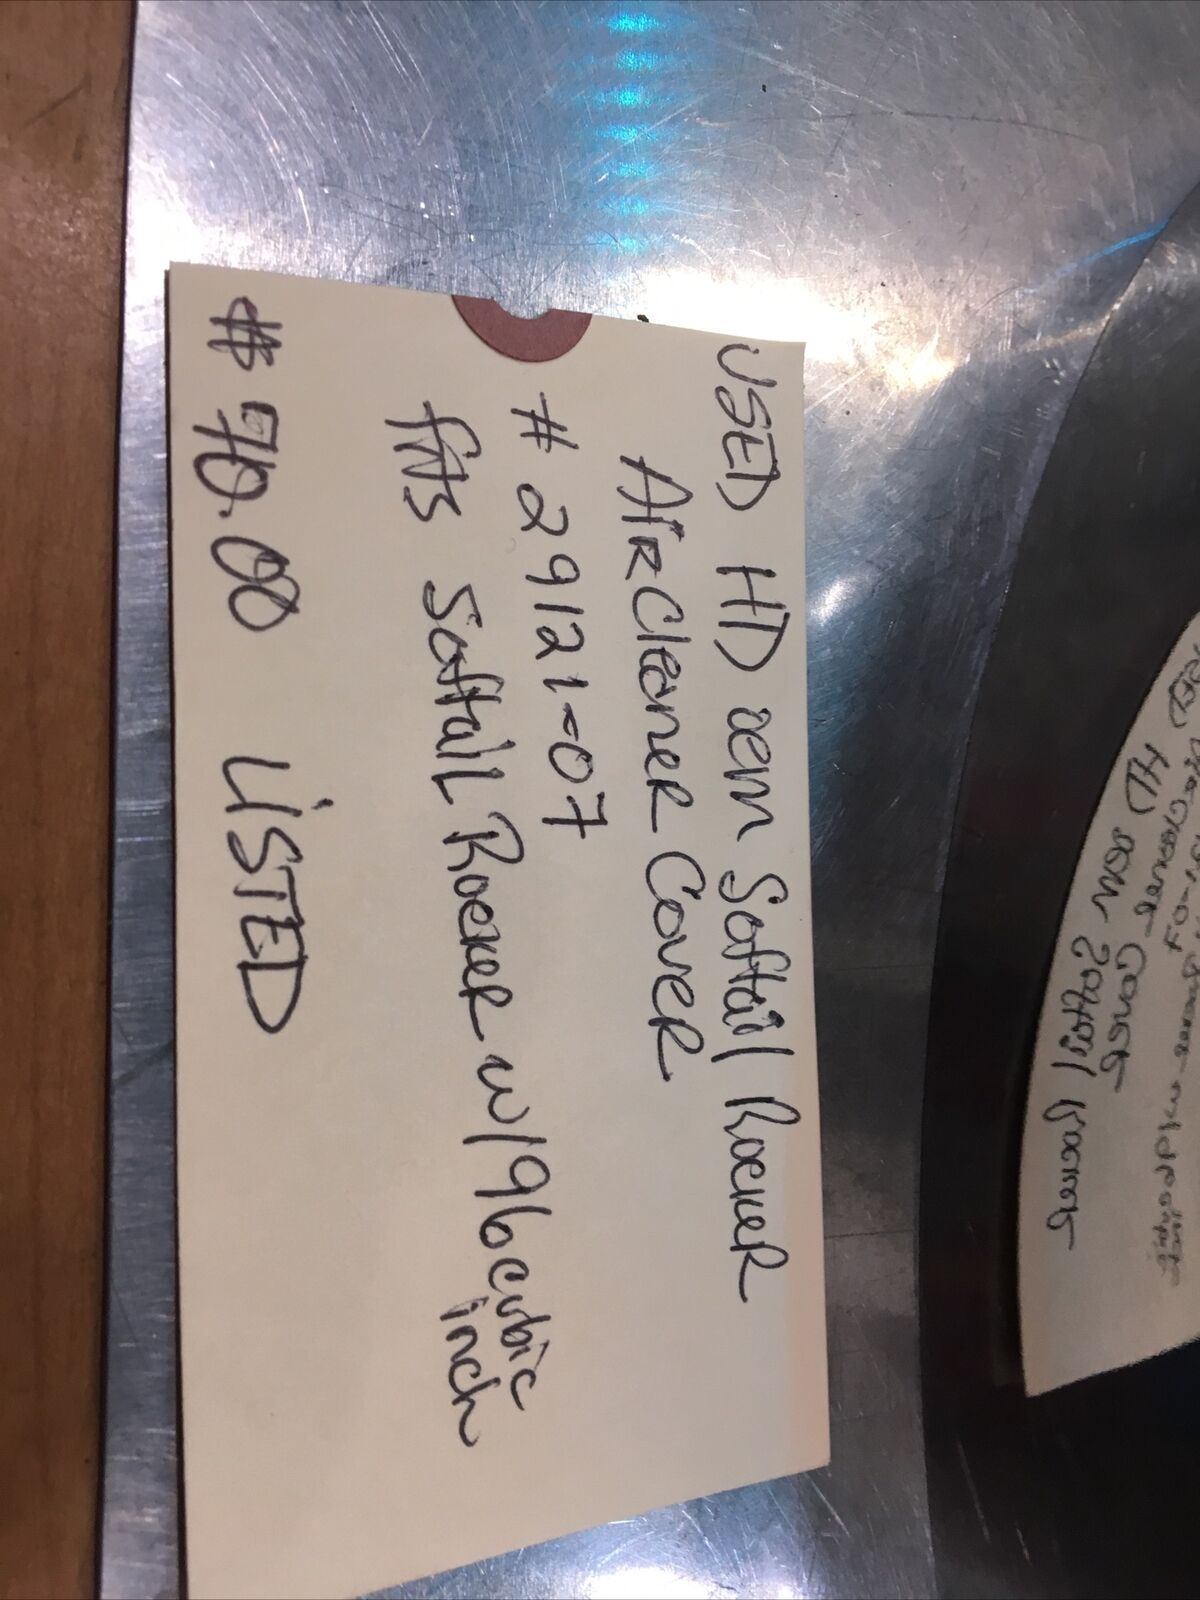 USED HD oem Softail Rocker
Air Cleaner Cover
# 29121-07
fits Softail Rocker w/96 cubic
inch
LISTED